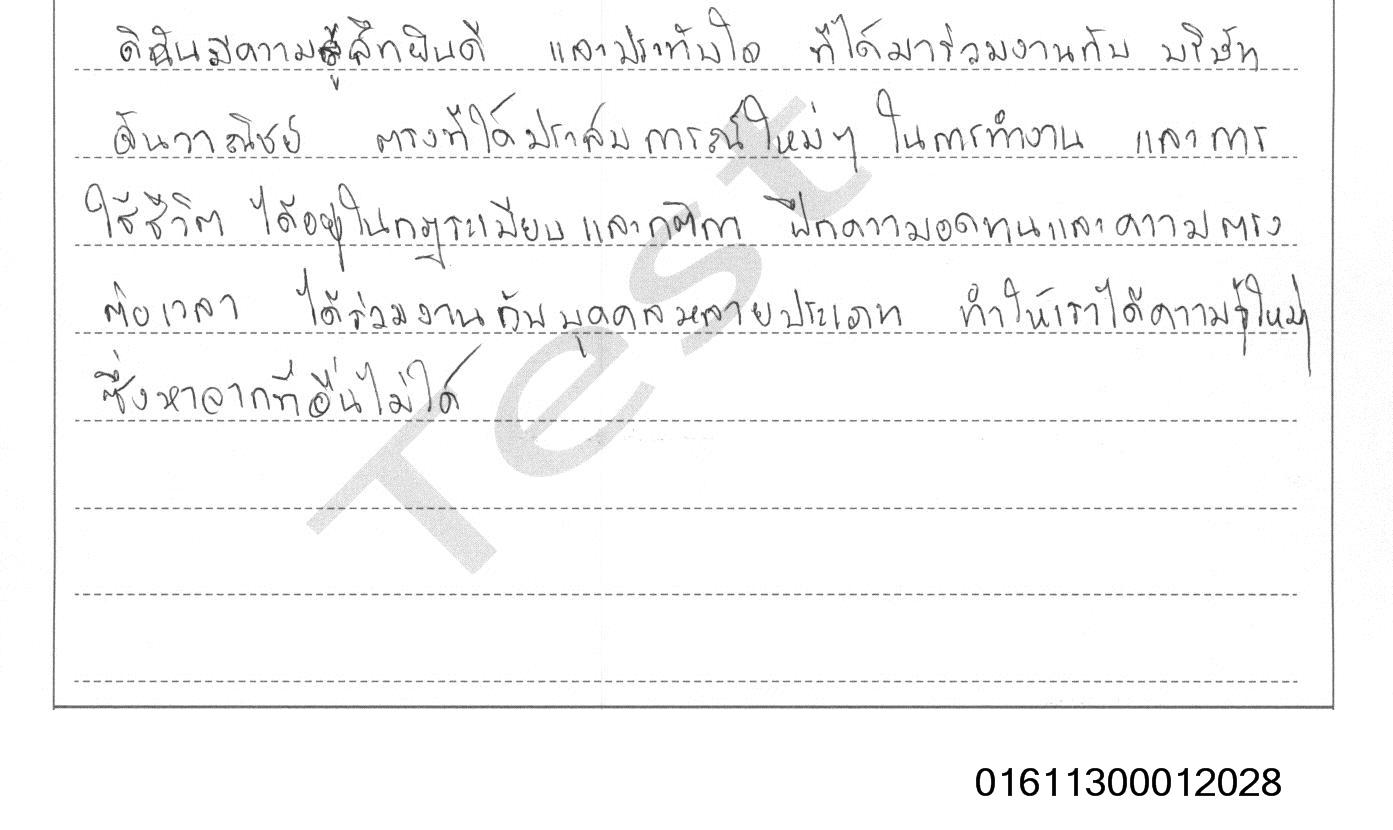 ดิฉันมีความรู้สึกยินดี และประทับใจ ที่ได้มาร่วมงานกับ บริษัท
ฉันวาณิชย์ ตรงที่ได้ประสบการณ์ใหม่ๆ ในการทำงาน และการ
ใช้ชีวิต ได้อยู่ในกฎระเบียบและกติกา ฝึกความอดทนและความตรง
ต่อเวลา ได้ร่วมงานกับบุคคลหลายประเภท ทำให้เราได้ความรู้ใหม่ๆ
ซึ่งหาจากที่อื่นไม่ได้
Test
01611300012028